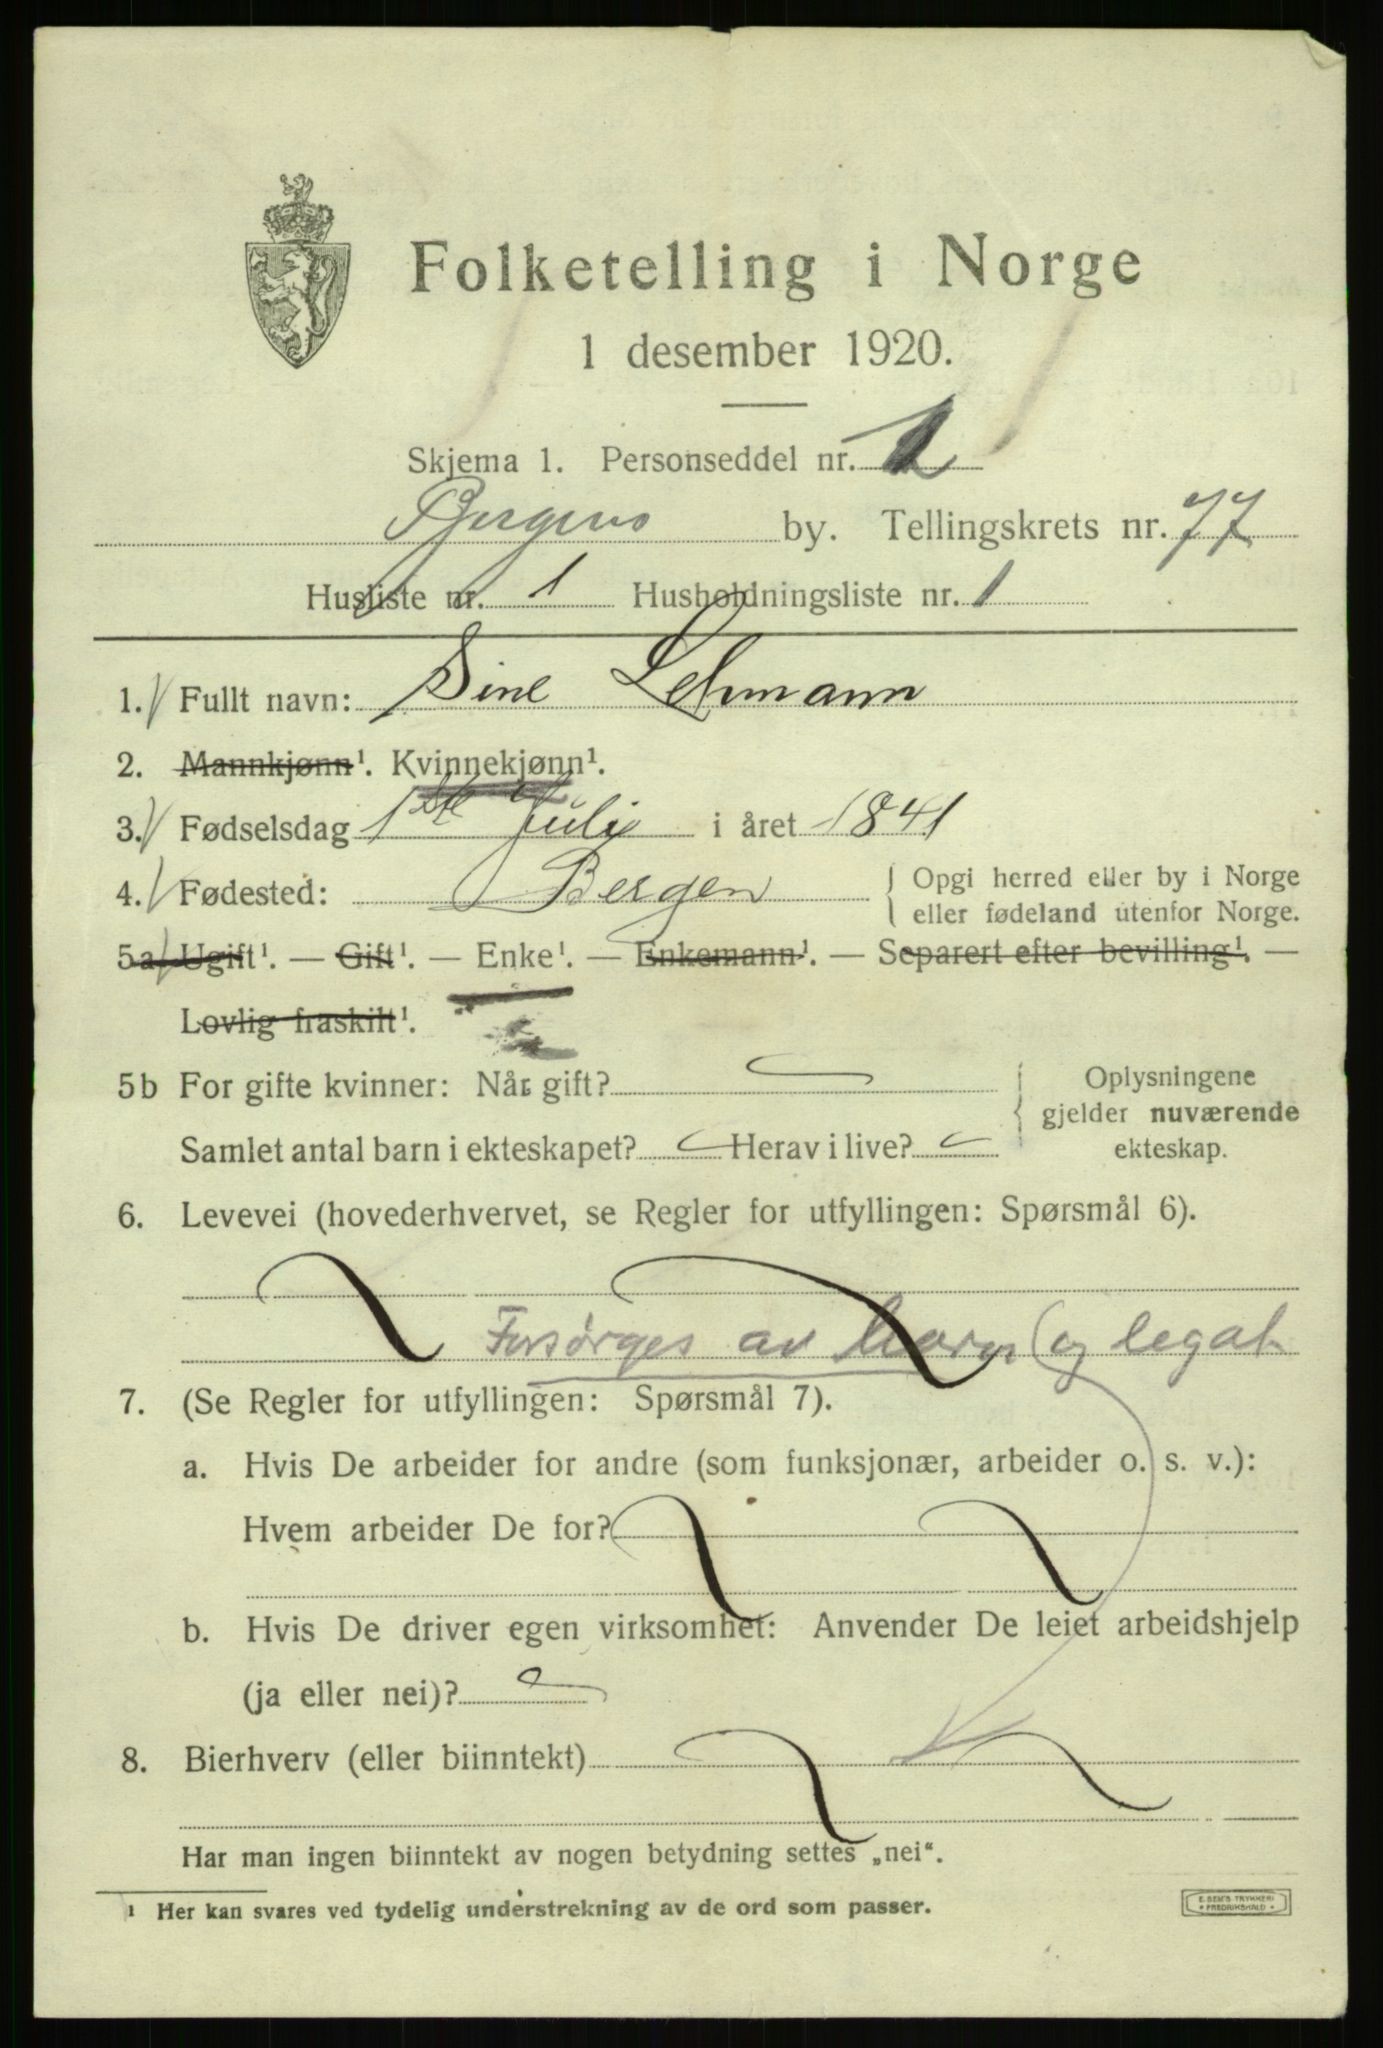 Folketelling i Norge
1 desember 1920.
Skjema 1. Personseddel nr. 1
Bergens by. Tellingskrets nr. 77
Husliste nr. 1 Husholdningsliste nr. 1
1. Fullt navn: Sine Lehmann
2. Mannkjønn¹. Kvinnekjønn¹.
3. Fødselsdag 1ste Juli i året 1841
4. Fødested: Bergen { Opgi herred eller by i Norge
eller fødeland utenfor Norge.
5a Ugift¹. — Gift¹. — Enke¹. — Enkemann¹. — Separert efter bevilling¹. —
Lovlig fraskilt¹.
5b For gifte kvinner: Når gift? { Oplysningene
gjelder nuværende
Samlet antal barn i ekteskapet? Herav i live? ekteskap.
6. Levevei (hovederhvervet, se Regler for utfyllingen: Spørsmål 6).
Forsørges av barn og legat
7. (Se Regler for utfyllingen: Spørsmål 7).
a. Hvis De arbeider for andre (som funksjonær, arbeider o. s. v.):
Hvem arbeider De for?
b. Hvis De driver egen virksomhet: Anvender De leiet arbeidshjelp
(ja eller nei)?
8. Bierhverv (eller biinntekt)
Har man ingen biinntekt av nogen betydning settes „nei“.
¹ Her kan svares ved tydelig understrekning av de ord som passer.
E. SEM'S TRYKKERI
FREDRIKSHALD